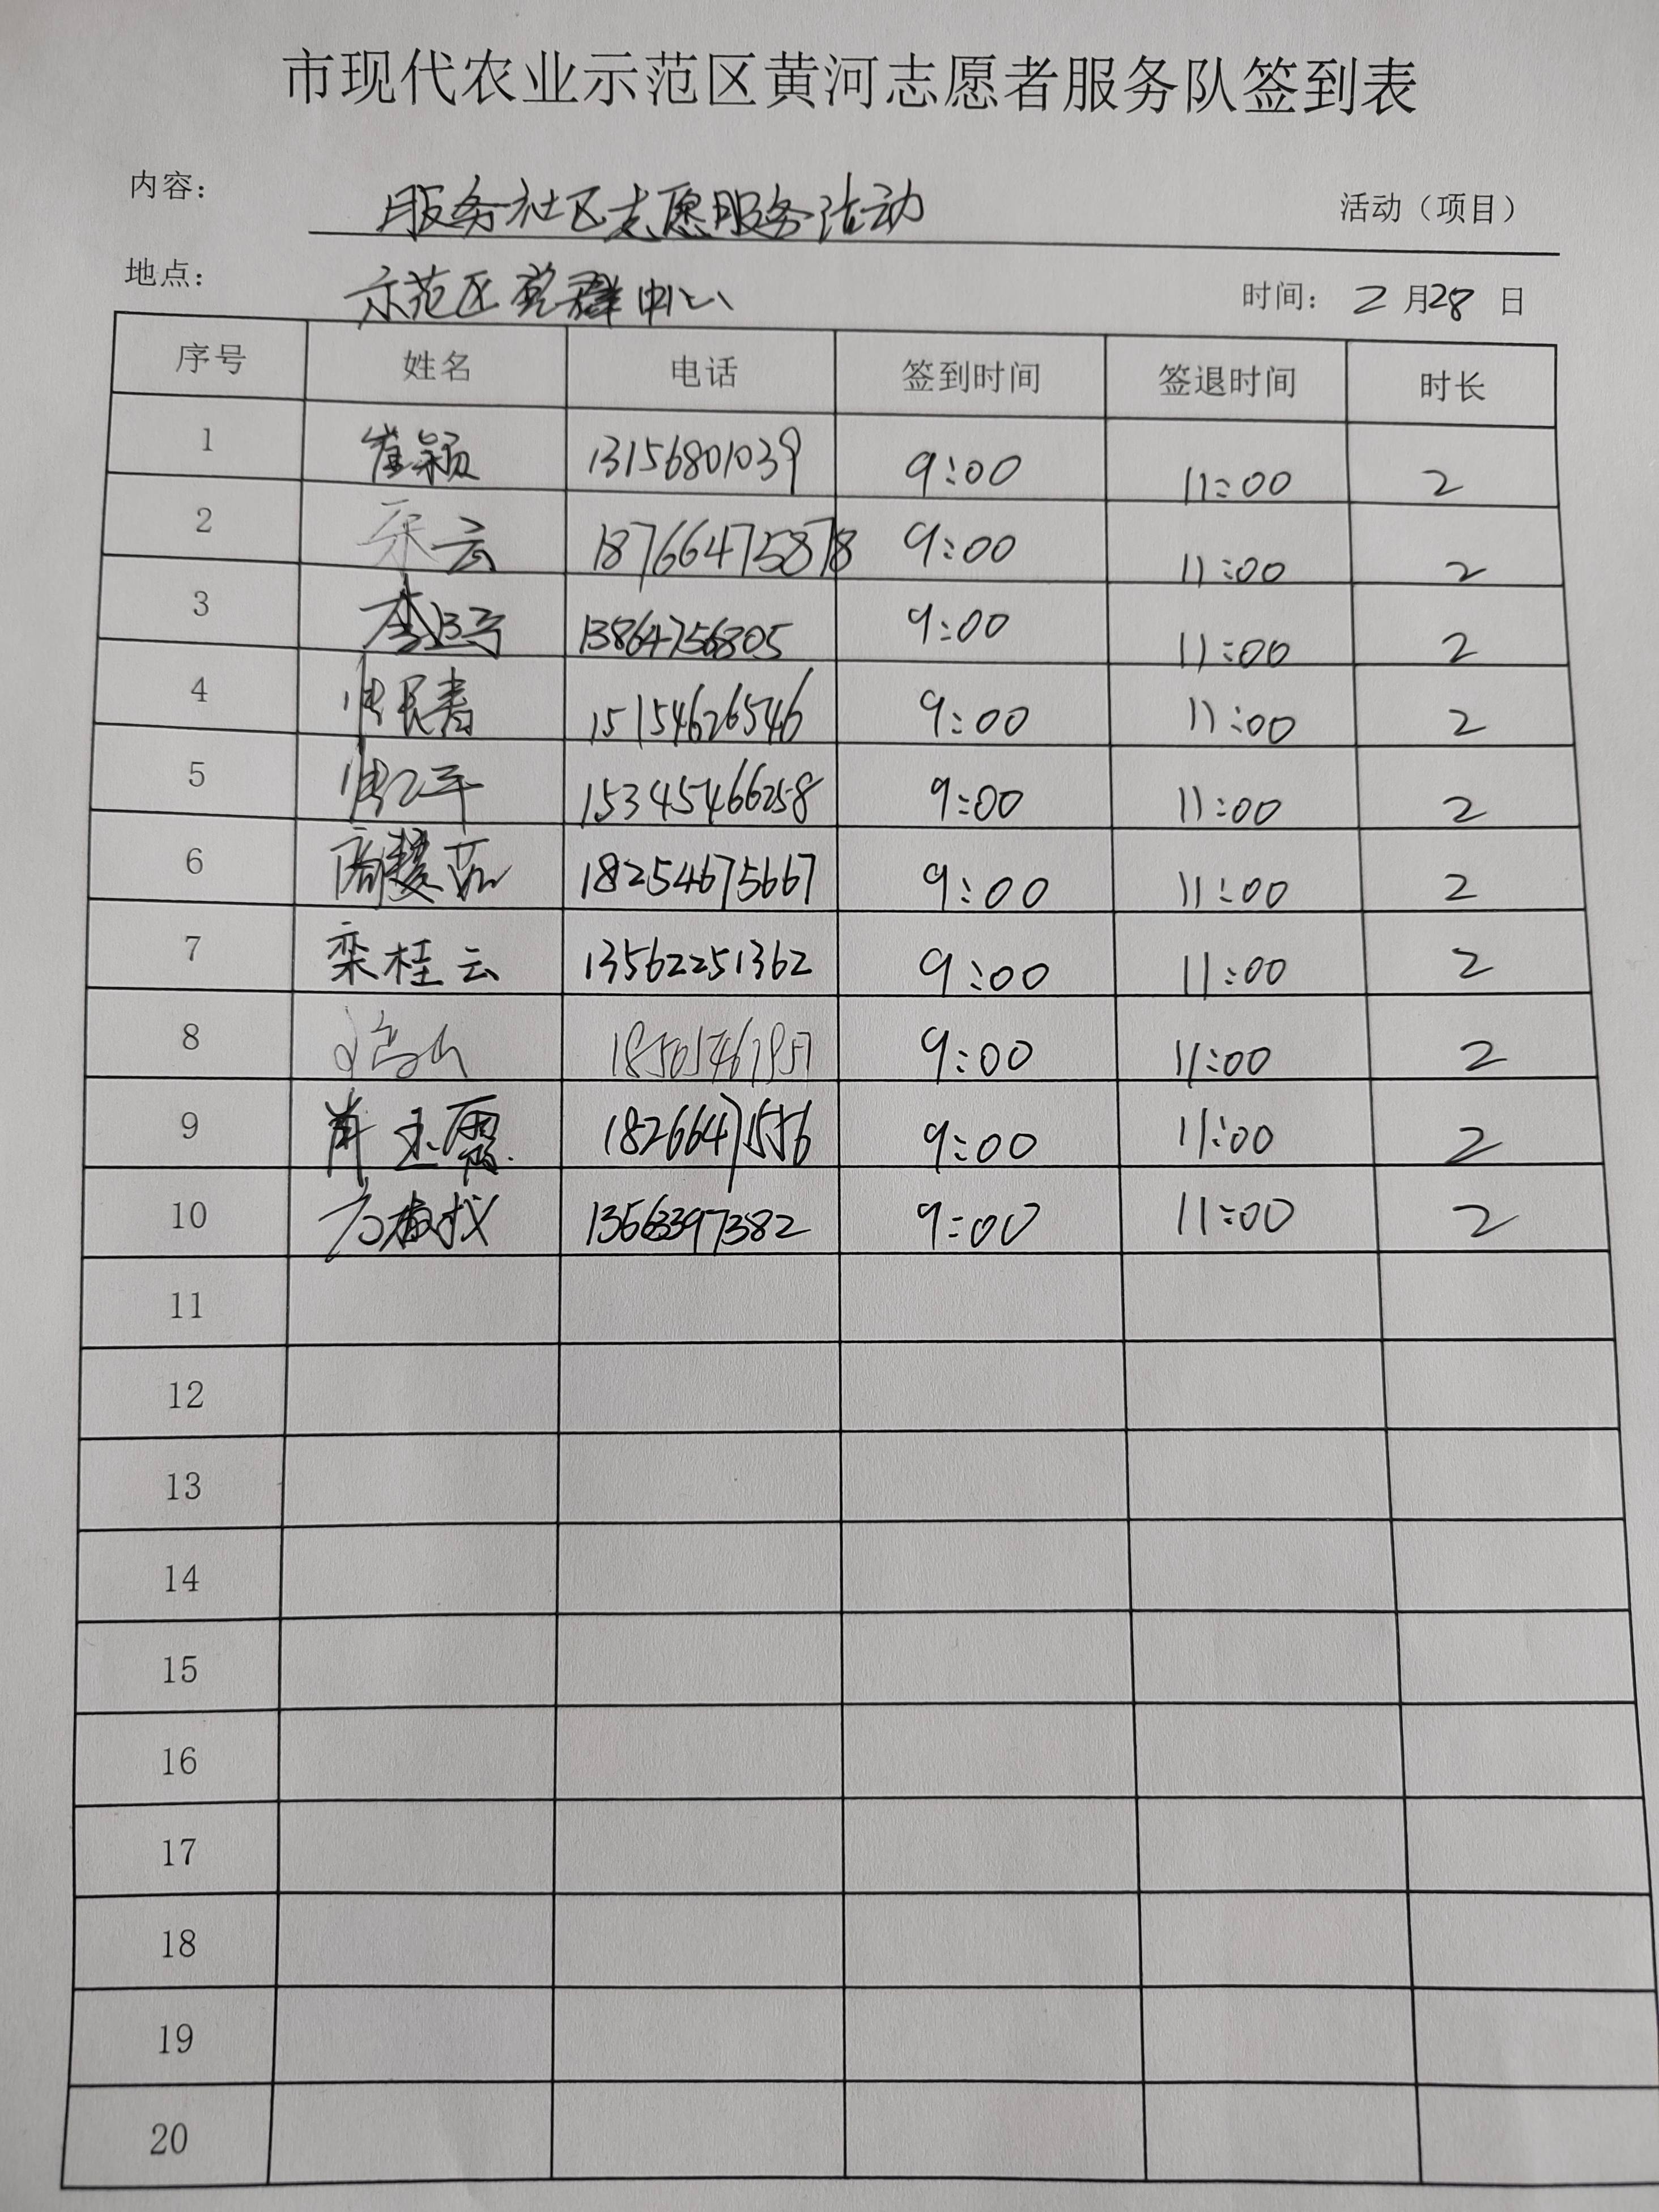 市现代农业示范区黄河志愿者服务队签到表
内容： 服务社区志愿服务活动 活动（项目）
地点： 示范区党群中心 时间： 2月28日
序号 姓名 电话 签到时间 签退时间 时长
1 崔颖 13156801039 9:00 11:00 2
2 宋云 18766475878 9:00 11:00 2
3 13864756805 9:00 11:00 2
4 15154626546 9:00 11:00 2
5 15345466258 9:00 11:00 2
6 18254675667 9:00 11:00 2
7 栾桂云 13562251362 9:00 11:00 2
8 9:00 11:00 2
9 肖玉霞 18266471556 9:00 11:00 2
10 13563397382 9:00 11:00 2
11
12
13
14
15
16
17
18
19
20